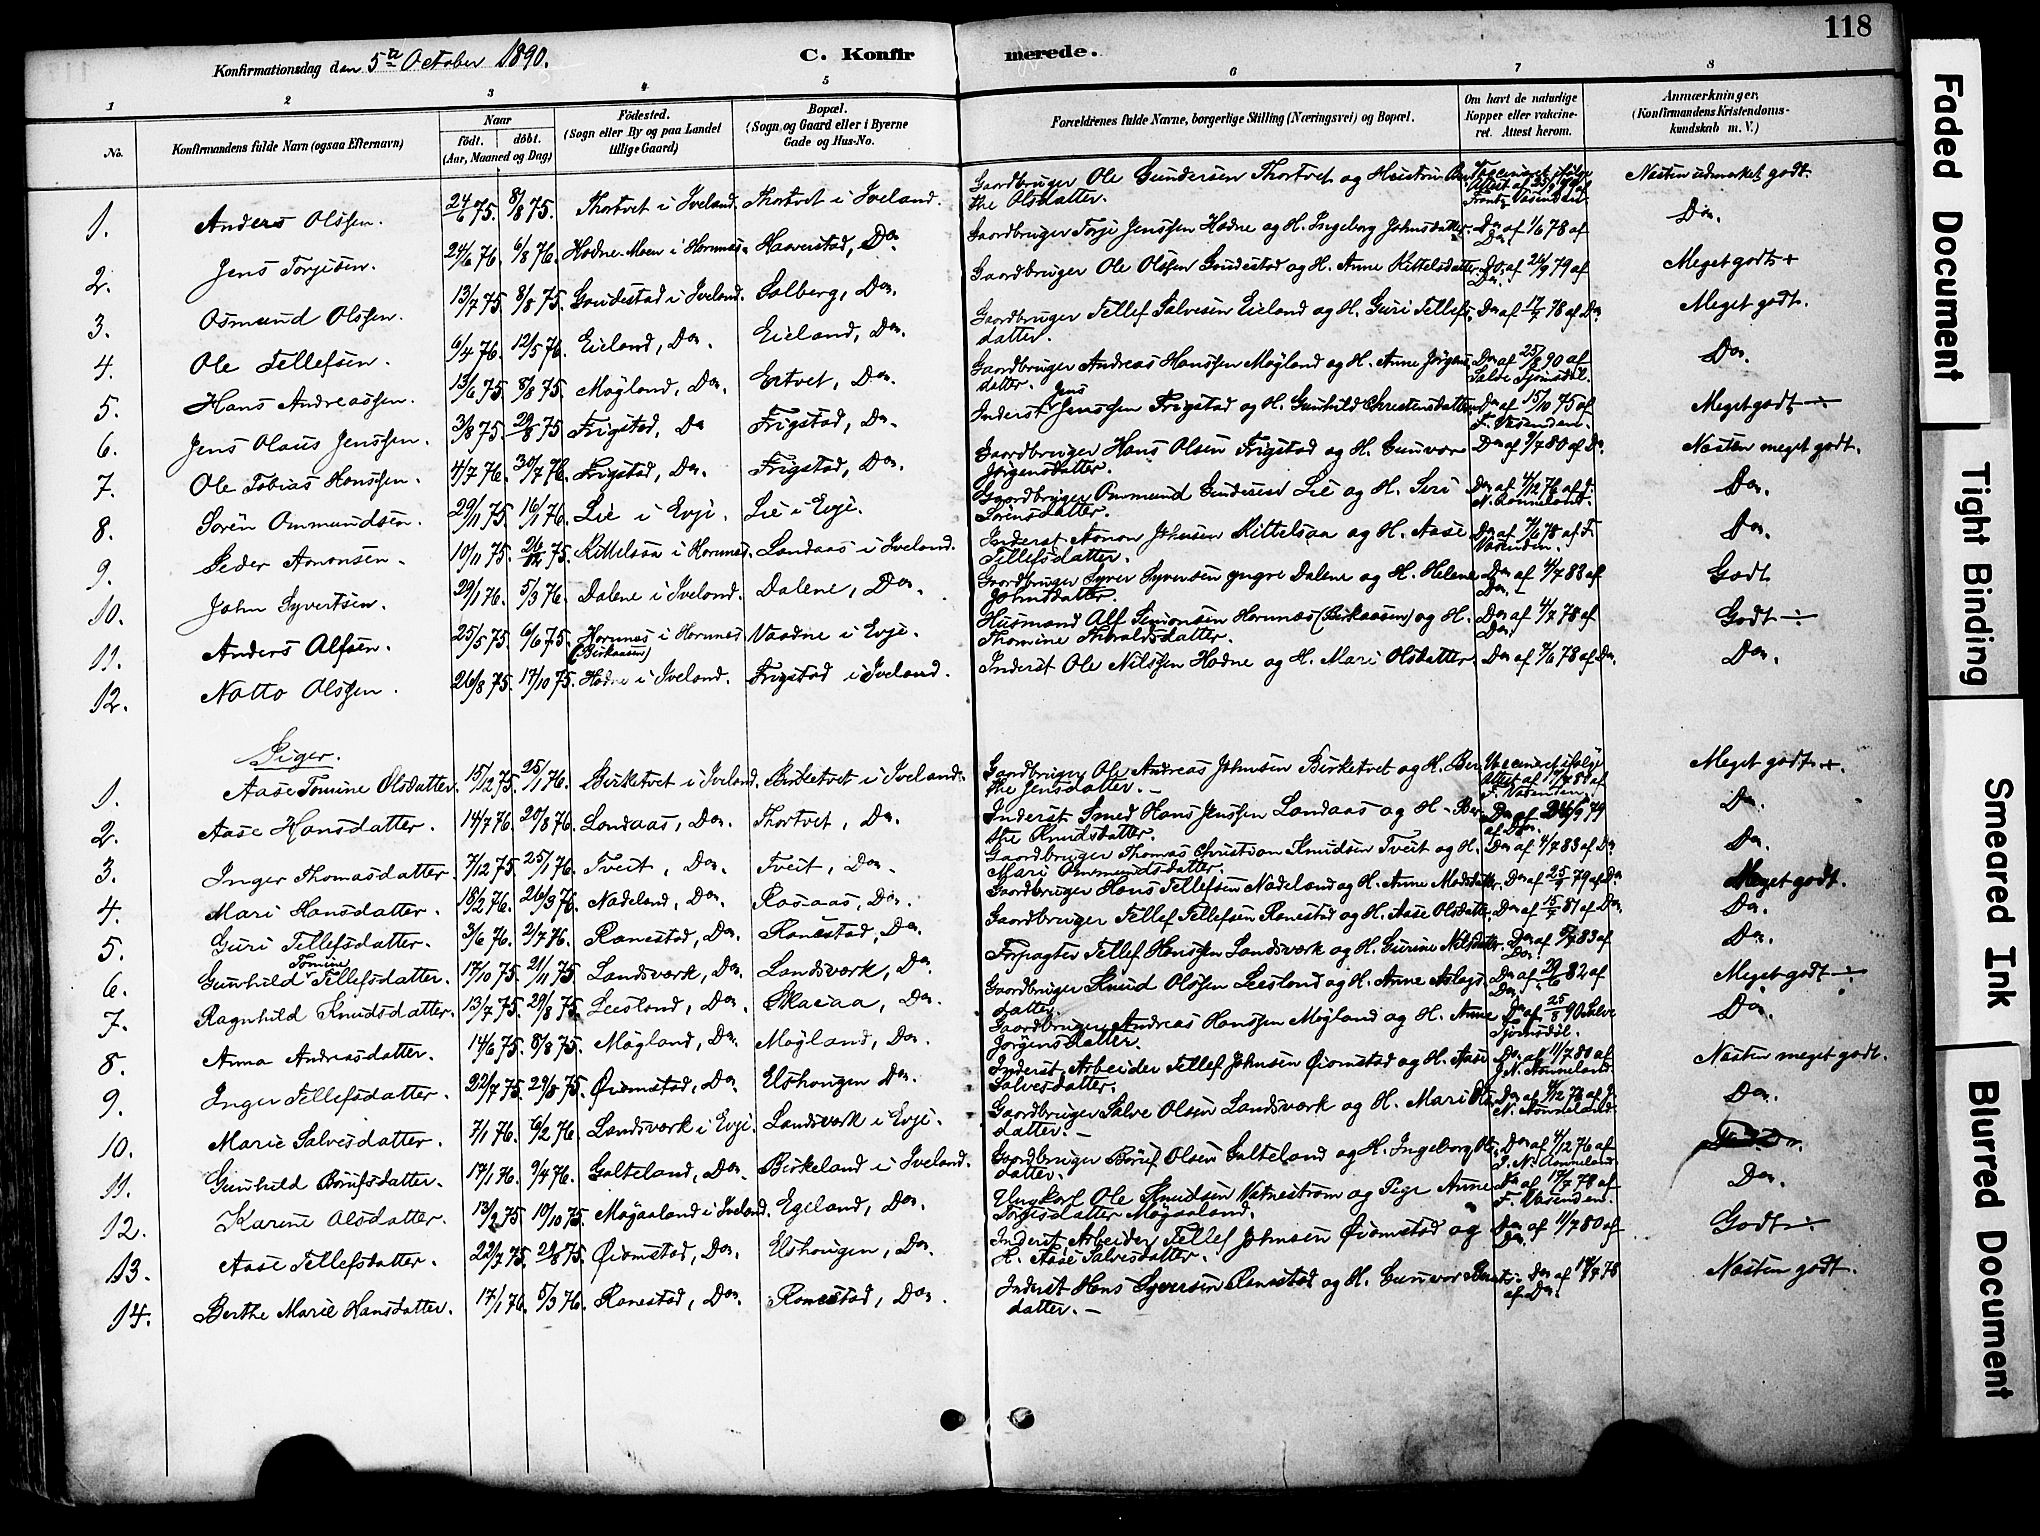 118
Konfirmationsdag den 5te October 1890.
C. Konfirmerede.
1 2 3 4 5 6 7 8
No.
Konfirmandens fulde Navn (ogsaa Efternavn)
Naar
födt. döbt.
(Aar, Maaned og Dag)
Födested.
(Sogn eller By og paa Landet
tillige Gaard)
Bopæl.
(Sogn og Gaard eller i Byerne
Gade og Hus-No.
Forældrenes fulde Navne, borgerlige Stilling (Næringsvei) og Bopæl.
Om havt de naturlige
Kopper eller vakcine-
ret. Attest herom.
Anmærkninger,
(Konfirmandens Kristendoms-
kundskab m. V.)
1. Anders Olssen. 24/6 75. 8/8 75. Thortvet i Iveland. Thortvet i Iveland. Gaardbruger Ole Gundersen Thortvet og Hustru Ber Vaccineret ifølge Næsten udmærket godt.
the Olsdatter.
2. Jens Torjisen. 24/6 76. 6/8 76. Hodne Moen i Hornnes. Haaverstad, Do. Gaardbruger Torje Jenssen Hodne og H. Ingeborg Johnsdatter. Do af 1/6 78 af Do.
3. Osmund Olssen. 13/7 75. 8/8 75. Goudestad i Iveland. Solberg, Do. Gaardbruger Ole Olssen Goudestad og H. Anne Kittelsdatter. Do. af 24/9 79 af Meget godt +
4. Ole Tellefsen. 6/4 76. 12/5 76. Eieland, Do. Eieland, Do. Gaardbruger Tellef Salvesen Eieland og H. Guri Tellefs- Do af 17/7 78 af Do. Meget godt.
datter.
5. Hans Andreassen. 13/6 75. 8/8 75. Møgland, Do. Ertvet, Do. Gaardbruger Andreas Hanssen Møgland og H. Anne Jørgens- Do af 25/5 90 af Do.
datter. Salve Tjømsdøl.
6. Jens Olaus Jenssen. 3/8 75. 29/8 75. Frigstad, Do Frigstad, Do. Inderst Jens Jenssen Frigstad og H. Gunhild Christensdatter Do af 15/10 75 af Meget godt ÷
F. Vasenden.
7. Ole Tobias Hanssen. 4/7 76. 30/7 76. Frigstad, Do. Frigstad, Do. Gaardbruger Hans Olsen Frigstad og H. Gunvor Do af 9/7 80 af Do Næsten meget godt.
Jørgensdatter.
8. Søren Ommundsen. 29/11 75. 16/1 76. Lie i Evje. Lie i Evje. Gaardbruger Ommund Gundersen Lie og H. Siri Do af 4/12 76 af J. Do.
Sørensdatter. N. Rønneland.
9. Peder Aanonsen. 10/11 75. 26/12 75. Kittelsaa i Hornnes. Landaas i Iveland. Inderst Aanon Johnsen Kittelsaa og H. Aase Do af 7/6 78 af F. Do.
Tellefsdatter. Vasenden.
10. John Syvertsen. 29/1 76. 5/3 76. Dalene i Iveland. Dalene, Do. Gaardbruger Syver Syversen yngre Dalene og H. Helene Do af 4/7 83 af Godt
Johnsdatter. Do.
11. Anders Alfsen. 25/5 75. 6/6 75. Hornnes i Hornnes (Birkaasen) Vaadne i Evje. Husmand Alf Simonsen Hornnæs (Birkaasen) og H. Do af 4/7 78 af Godt ÷
Thomine Thoraldsdatter. Do.
12. Natto Olssen. 26/8 75. 17/10 75. Hodne i Iveland. Frigstad i Iveland. Inderst Ole Nilssen Hodne og H. Mari Olsdatter. Do af 7/6 78 af Do. Do.
Piger.
1. Aase Tomine Olsdatter. 15/12 75. 25/1 76. Birketvet i Iveland. Birketvet i Iveland. Gaardbruger Ole Andreas Johnsen Birketvet og H. Ber Vaccineret ifølge Meget godt +.
the Jensdatter. — F. Vasenden.
2. Aase Hansdatter. 14/7 76. 20/8 76. Landaas, Do. Thortvet, Do. Inderst Smed Hans Jenssen Landaas og H. Ber Do af 24/9 79 Do.
the Knudsdatter. af Do.
3. Inger Thomasdatter. 7/12 75. 25/1 76. Tveit, Do. Tveit, Do. Gaardbruger Thomas Christian Knudsen Tveit og H. Do af 4/7 83 af Do Do.
Mari Ommundsdatter.
4. Mari Hansdatter. 18/2 76. 26/3 76. Nadeland, Do. Rosaas, Do. Gaardbruger Hans Tellefsen Nadeland og H. Anne Madsdatter. Do af 25/9 79 af Do Meget godt.
5. Guri Tellefsdatter. 3/6 76. 2/7 76. Ranestad, Do. Ranestad, Do. Gaardbruger Tellef Tellefsen Ranestad og H. Aase Olsdatter. Do af 15/7 81 af Do. Do.
6. Gunhild Tomine Tellefsdatter. 17/10 75. 21/11 75. Landsværk, Do. Landsværk, Do. Forpagter Tellef Hanssen Landsværk og H. Gurine Nilsdatter. Do af 5/7 83 af Do.
7. Ragnhild Knudsdatter. 13/7 75. 29/8 75. Leesland, Do. Skaiaa, Do. Gaardbruger Knud Olssen Leesland og H. Anne Aslags- Do af 29/6 82 af Meget godt ÷
datter.
8. Anna Andreasdatter. 14/6 75. 8/8 75. Møgland, Do. Møgland, Do. Gaardbruger Andreas Hanssen Møgland og H. Anne Do af 25/5 90 Salve Do.
Jørgensdatter. Tjømsdøl.
9. Inger Tellefsdatter. 22/7 75. 29/8 75. Øiomstad, Do. Elshougen Do. Inderst, Arbeider Tellef Johnsen Øiomstad og H. Aase Do. af 11/7 80 af Næsten meget godt.
Salvesdatter.
10. Marie Salvesdatter. 7/1 76. 6/2 76. Landsværk i Evje. Landsværk i Evje. Gaardbruger Salve Olsen Landsværk og H. Mari Ols Do af 4/12 76 af J. Do.
datter. — N. Rønneland.
11. Gunhild Børufsdatter. 17/1 76. 9/4 76. Galteland, Do. Birkeland i Iveland. Gaardbruger Børuf Olsen Galteland og H. Ingeborg Ols- Do af 4/12 76 af
datter.
12. Karine Olsdatter. 13/2 75. 10/10 75. Møgaaland i Iveland. Egeland, Do. Ungkarl Ole Knudsen Vatnestrøm og Pige Anne Do af 17/7 78 af Do.
Torjesdatter Møgaaland. F. Vasenden.
13. Aase Tellefsdatter. 22/7 75. 29/8 75. Øiomstad, Do. Elshougen, Do. Inderst Arbeider Tellef Johnsen Øiomstad og Do af 11/7 80 af Godt ÷
H. Aase Salvesdatter. Do.
14. Berthe Marie Hansdatter. 17/1 76. 5/3 76. Ranestad, Do. Ranestad, Do. Inderst Hans Syversen Ranestad og H. Gunvor Do af 17/7 78 Næsten godt.
datter. — af Do.
Faded Document
Tight Binding
Smeared Ink
Blurred Document